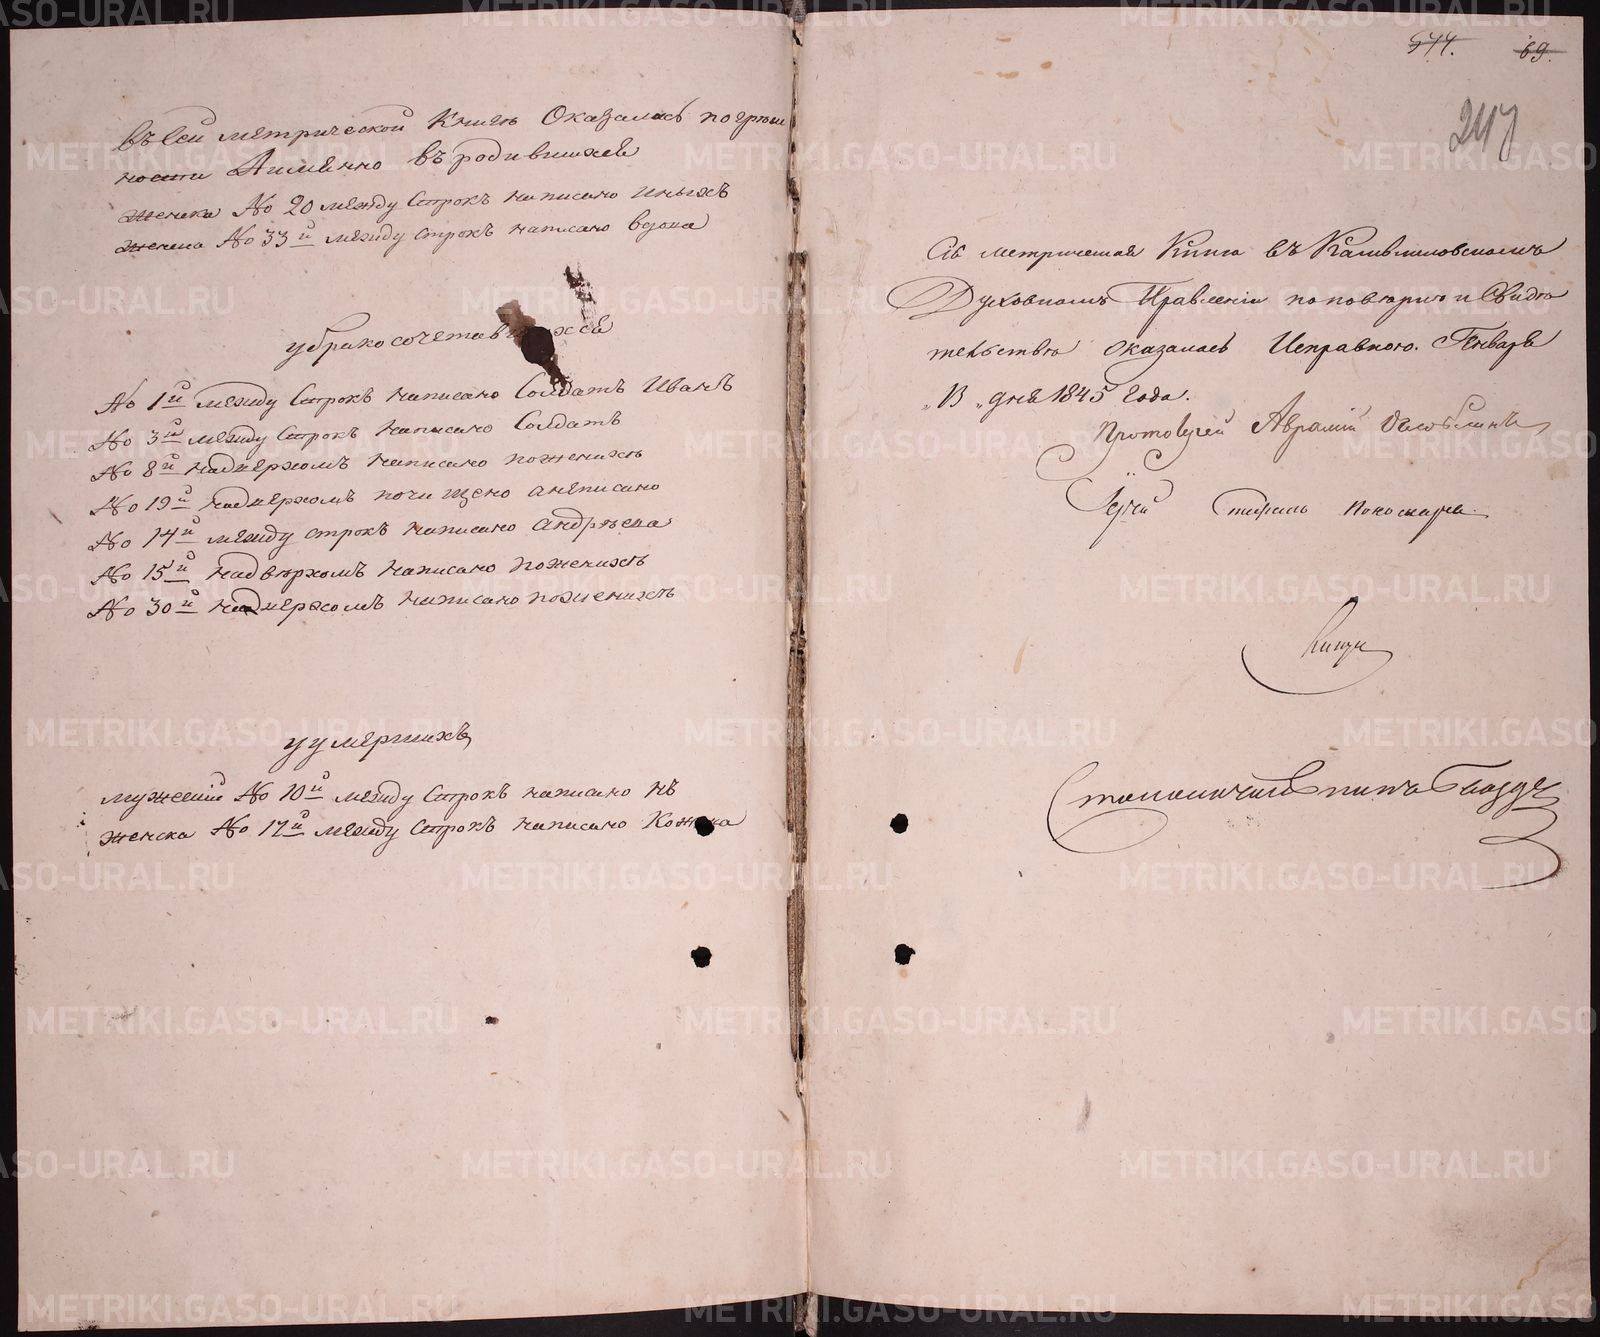 въ сей метрической Книгѣ Оказалась погрѣш
ности Аименно въ родившихся
женска № 20 между Строкъ написано иныхъ
женска № 33й между строкъ написано вдова
убракосочетавшихся
№ 1й между Строкъ написано Солдатъ Иванъ
№ 3й между Строкъ написано Солдатъ
№ 8й надверхомъ написано поженихѣ
№ 19й надверхомъ почищено анеписано
№ 14й между строкъ написано Андрѣева
№ 15й надвѣрхомъ написано поженихѣ
№ 30й надверхомъ написано поженихѣ
у умершихъ
мужескій № 10й между Строкъ написано нъ
женска № 17й между Строкъ написано
544. 69.
247
Сія метрическая Книга въ Камышловскомъ
Духовномъ Правленіи по повѣркѣ и Свидѣ
тельствѣ оказалась Исправною. Генваря
"13" дня 1845 года.
Протоіерей Аврамій
Іерей Пономаревъ
Столоначальникъ
METRIKI.GASO-URAL.RU